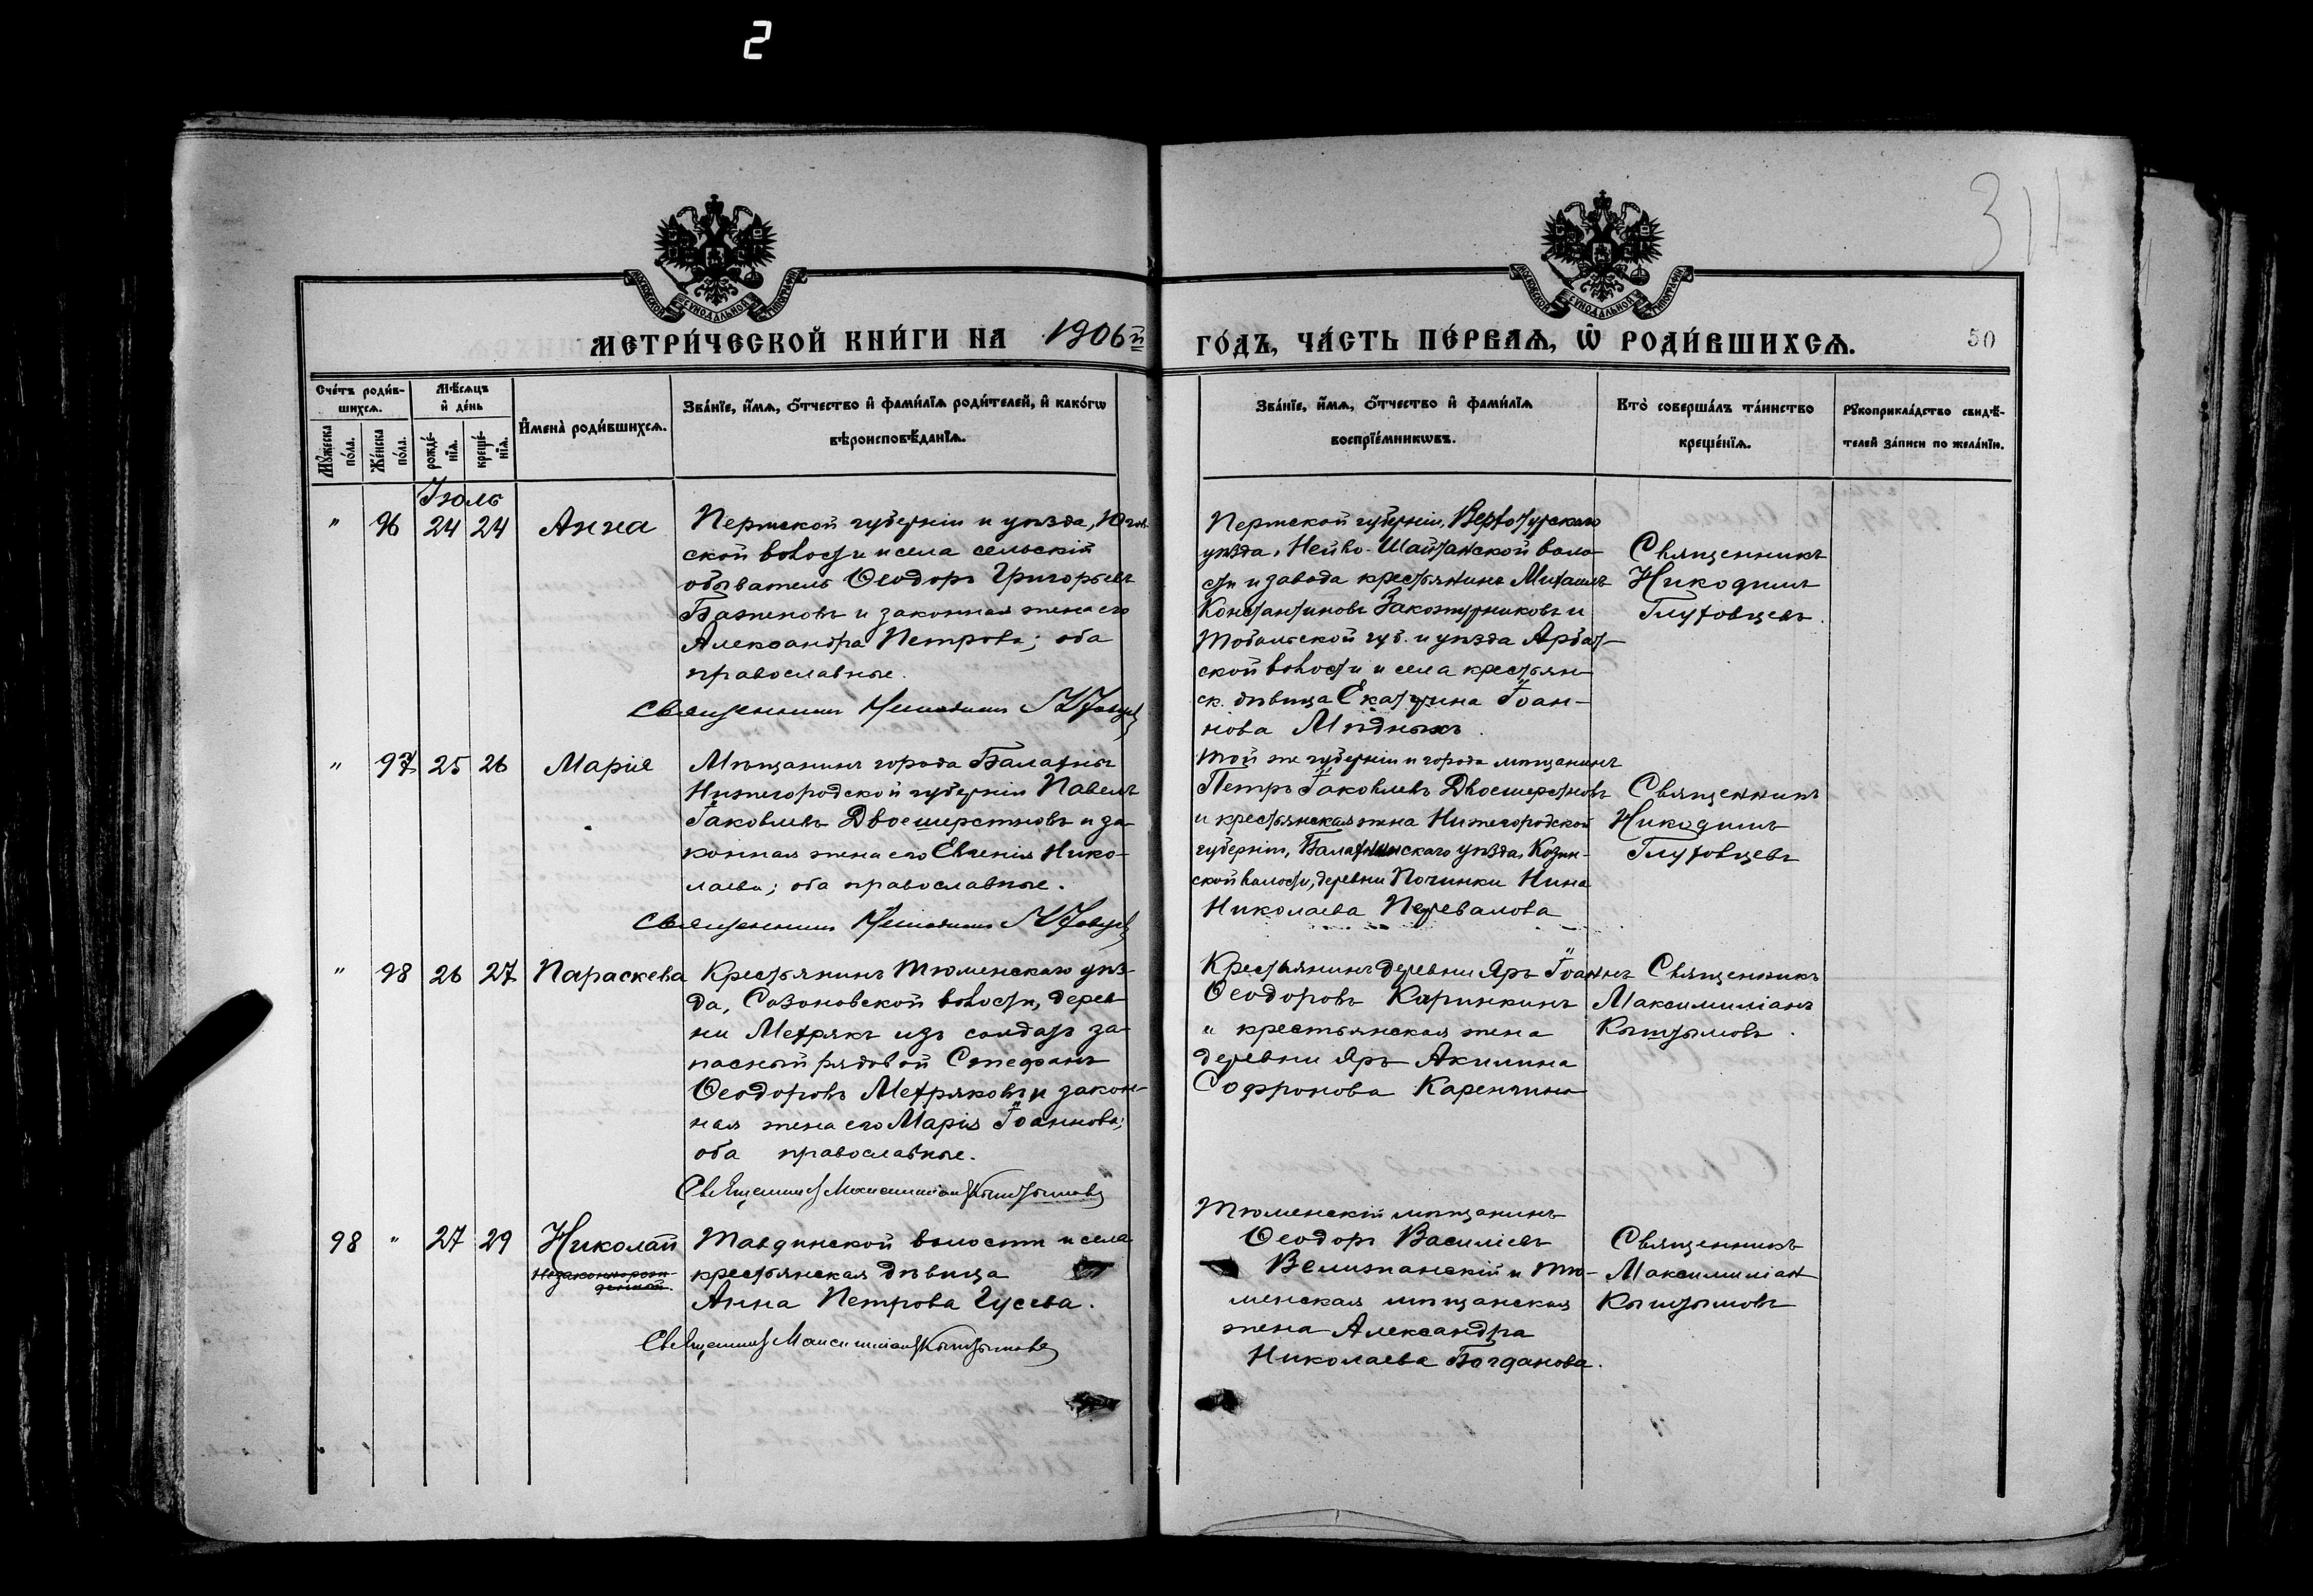 2
311
МОСКОВСКОЙ СѴНОДАЛЬНОЙ ТИПОГРАФІИ
МОСКОВСКОЙ СѴНОДАЛЬНОЙ ТИПОГРАФІИ
МЕТРИ́ЧЕСКОЙ КНИ́ГИ НА 1906й
ГО́ДЪ, ЧА́СТЬ ПЕ́РВАѦ, Ѽ РОДИ́ВШИХСѦ.
50
Сче́тъ роди́в-
шихсѧ.
Мѣ́сѧцъ
и҆ де́нь
Мꙋ́жеска
по́ла.
Же́нска
по́ла.
рожде́-
нїѧ.
креще́-
нїѧ.
И҆мена̀ роди́вшихсѧ.
Зва́нїе, и҆́мѧ, ѻ҆́тчество и҆ фами́лїѧ роди́телей, и҆ какѡ́гѡ
вѣроисповѣ́данїѧ.
Зва́нїе, и҆́мѧ, ѻ҆́тчество и҆ фами́лїѧ
воспрїе́мникѡвъ.
Кто̀ соверша́лъ та́инство
креще́нїѧ.
Рꙋкоприкла́дство свидѣ́-
телей за́писи по жела́нїю.
Іюль
" 96 24 24 Анна
Пермской губерніи и уѣзда, Югов-
ской волости и села сельскій
обыватель Ѳеодоръ Григорьевъ
Баженовъ и законная жена его
Александра Петрова; оба
православные.
Священникъ Никодимъ
Пермской губерніи, Верхотурскаго
уѣзда, Нейво-Шайтанской воло-
сти и завода крестьянинъ Михаилъ
Константиновъ Закожурниковъ и
Тобольской губ. и уѣзда Арбат-
ской волости и села крестьян-
ск. дѣвица Екатерина Іоан-
нова Мѣдныхъ.
Священникъ
Никодимъ
Глуховцевъ.
" 97 25 26 Марія
Мѣщанинъ города Балахны
Нижегородской губерніи Павелъ
Іаковлевъ Двоешерстновъ и за-
конная жена его Евгенія Нико-
лаева; оба православные.
Священникъ Никодимъ
Той же губерніи и города мѣщанинъ
Петръ Іаковлевъ Двоешерстновъ
и крестьянская жена Нижегородской
губерніи, Балахнинскаго уѣзда, Козин-
ской волости, деревни Починки Нина
Николаева Перевалова
Священникъ
Никодимъ
Глуховцевъ
" 98 26 27 Параскева
Крестьянинъ Тюменскаго уѣз-
да, Созоновской волости, дерев-
ни Метрякъ изъ солдатъ за-
пасный рядовой Стефанъ
Ѳеодоровъ Метряковъ и закон-
ная жена его Марія Іоаннова;
оба православные.
Священникъ Максимиліанъ Кыштымовъ
Крестьянинъ деревни Яръ Іоаннъ
Ѳеодоровъ Каринкинъ
и крестьянская жена
деревни Яръ Акилина
Софронова Каренкина
Священникъ
Максимиліанъ
Кыштымовъ.
98 " 27 29 Николай
Незаконнорож-
денный.
Тавдинской волости и села
крестьянская дѣвица
Анна Петрова Гусева.
Священникъ Максимиліанъ Кыштымовъ
Тюменскій мѣщанинъ
Ѳеодоръ Василіевъ
Велижанскій и Тю-
менская мѣщанская
жена Александра
Николаева Богданова.
Священникъ
Максимиліан
Кыштымовъ